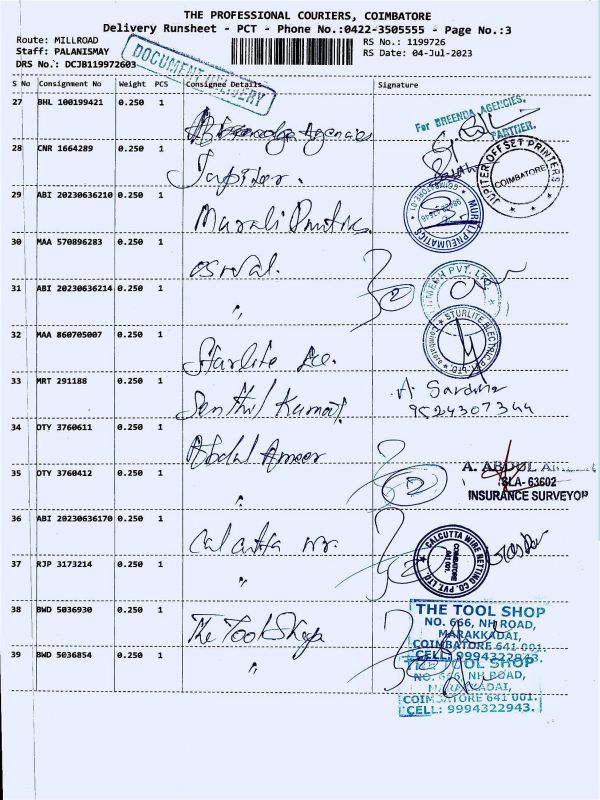 THE PROFESSIONAL COURIERS, COIMBATORE
Delivery Runsheet - PCT - Phone No.:0422-3505555 - Page No.:3
Route: MILLROAD
RS No.: 1199726
Staff: PALANISMAY
RS Date: 04-Jul-2023
DRS No.: DCJB119972603
DOCUMENT DELIVERY
S No Consignment No Weight PCS Consignee Details Signature
27 BHL 100199421 0.250 1
Agencies
For BREENDA AGENCIES.
PARTNER.
28 CNR 1664289 0.250 1
Jupiter.
JUPITER OFFSET PRINTERS
COIMBATORE
29 ABI 20230636210 0.250 1
Murali
MURELI PNEUMATICS
30 MAA 570896283 0.250 1
31 ABI 20230636214 0.250 1
"
PVT. LTD
32 MAA 860705007 0.250 1
Starlite Ele.
STURLITE ELECTRIC
33 MRT 291188 0.250 1
Senthil Kumar.
9524307344
34 DTY 3760611 0.250 1
Abdul Ameer
A. ABDUL
SLA- 63602
INSURANCE SURVEYOR
35 DTY 3760412 0.250 1
"
36 ABI 20230636170 0.250 1
Calcutta
CALCUTTA WIRE NETTING CO. PVT. LTD.
COIMBATORE
641 001.
37 RJP 3173214 0.250 1
"
38 BWD 5036930 0.250 1
The Tool Shop
THE TOOL SHOP
NO. 666, NH ROAD,
MARAKKADAI,
COIMBATORE 641 001.
CELL: 9994322943.
39 BWD 5036854 0.250 1
"
THE TOOL SHOP
NO. 666, NH ROAD,
MARAKKADAI,
COIMBATORE 641 001.
CELL: 9994322943.